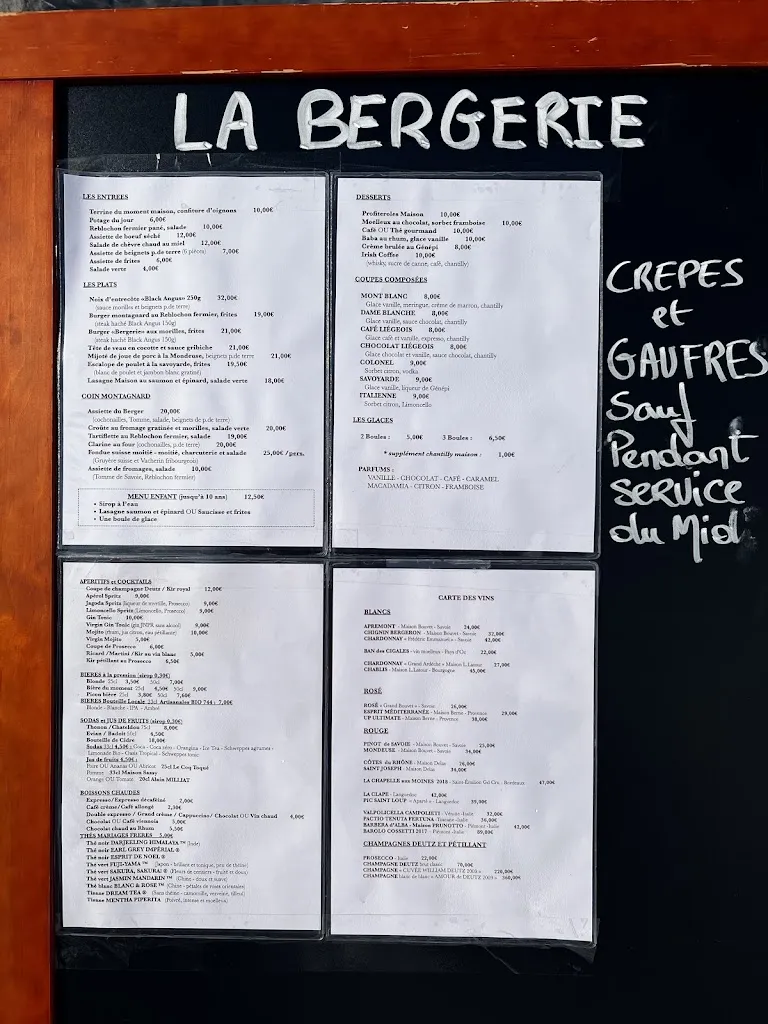 LA BERGERIE
LES ENTREES
Terrine du moment maison, confiture d'oignons 10,00€
Potage du jour 6,00€
Reblochon fermier pané, salade 10,00€
Assiette de boeuf séché 12,00€
Salade de chèvre chaud au miel 12,00€
Assiette de beignets p.de terre (6 pièces) 7,00€
Assiette de frites 6,00€
Salade verte 4,00€
LES PLATS
Noix d'entrecôte «Black Angus» 250g 32,00€
(sauce morilles et beignets p.de terre)
Burger montagnard au Reblochon fermier, frites 19,00€
(steak haché Black Angus 150g)
Burger «Bergerie» aux morilles, frites 21,00€
(steak haché Black Angus 150g)
Tête de veau en cocotte et sauce gribiche 21,00€
Mijoté de joue de porc à la Mondeuse, beignets p.de terre 21,00€
Escalope de poulet à la savoyarde, frites 19,50€
(blanc de poulet et jambon blanc gratiné)
Lasagne Maison au saumon et épinard, salade verte 18,00€
COIN MONTAGNARD
Assiette du Berger 20,00€
(cochonailles, Tomme, salade, beignets de p.de terre)
Croûte au fromage gratinée et morilles, salade verte 20,00€
Tartiflette au Reblochon fermier, salade 19,00€
Clarine au four (cochonailles, p.de terre) 20,00€
Fondue suisse moitié - moitié, charcuterie et salade 25,00€ /pers.
(Gruyère suisse et Vacherin fribourgeois)
Assiette de fromages, salade 10,00€
(Tomme de Savoie, Reblochon fermier)
MENU ENFANT (jusqu'à 10 ans) 12,50€
• Sirop à l'eau
• Lasagne saumon et épinard OU Saucisse et frites
• Une boule de glace
DESSERTS
Profiteroles Maison 10,00€
Moelleux au chocolat, sorbet framboise 10,00€
Café OU Thé gourmand 10,00€
Baba au rhum, glace vanille 10,00€
Crème brulée au Génépi 8,00€
Irish Coffee 10,00€
(whisky, sucre de canne, café, chantilly)
COUPES COMPOSÉES
MONT BLANC 8,00€
Glace vanille, meringue, crème de marron, chantilly
DAME BLANCHE 8,00€
Glace vanille, sauce chocolat, chantilly
CAFÉ LIÉGEOIS 8,00€
Glace café et vanille, expresso, chantilly
CHOCOLAT LIÉGEOIS 8,00€
Glace chocolat et vanille, sauce chocolat, chantilly
COLONEL 9,00€
Sorbet citron, vodka
SAVOYARDE 9,00€
Glace vanille, liqueur de Génépi
ITALIENNE 9,00€
Sorbet citron, Limoncello
LES GLACES
2 Boules : 5,00€ 3 Boules : 6,50€
* supplément chantilly maison : 1,00€
PARFUMS :
VANILLE - CHOCOLAT - CAFÉ - CARAMEL
MACADAMIA - CITRON - FRAMBOISE
CREPES
et
GAUFRES
Sauf
Pendant
SERVICE
du Midi
APERITIFS et COCKTAILS
Coupe de champagne Deutz / Kir royal 12,00€
Apérol Spritz 9,00€
Jagoda Spritz (liqueur de myrtille, Prosecco) 9,00€
Limoncello Spritz (Limoncello, Prosecco) 9,00€
Gin Tonic 10,00€
Virgin Gin Tonic (gin JNPR sans alcool) 9,00€
Mojito (rhum, jus citron, eau pétillante) 10,00€
Virgin Mojito 5,00€
Coupe de Prosecco 6,00€
Ricard /Martini /Kir au vin blanc 5,00€
Kir pétillant au Prosecco 6,50€
BIERES à la pression (sirop 0,30€)
Blonde 25cl 3,50€ 50cl 7,00€
Bière du moment 25cl 4,50€ 50cl 9,00€
Picon bière 25cl 3,80€ 50cl 7,60€
BIERES Bouteille Locale 33cl Artisanales BIO 744 : 7,00€
Blonde - Blanche - IPA - Ambré
SODAS et JUS DE FRUITS (sirop 0,30€)
Thonon / Chateldon 75cl 8,00€
Evian / Badoit 50cl 4,50€
Bouteille de Cidre 10,00€
Sodas 33cl 4,50€ : Coca - Coca zéro - Orangina - Ice Tea - Schweppes agrumes -
Limonade Bio - Oasis Tropical - Schweppes tonic
Jus de fruits 4,50€ :
Poire OU Ananas OU Abricot 25cl Le Coq Toqué
Pomme 33cl Maison Saxay
Orange OU Tomate 20cl Alain MILLIAT
BOISSONS CHAUDES
Expresso/Expresso décaféiné 2,00€
Café crème/Café allongé 2,30€
Double expresso / Grand crème / Cappuccino/ Chocolat OU Vin chaud 4,00€
Chocolat OU Café viennois 5,00€
Chocolat chaud au Rhum 5,50€
THÉS MARIAGES FRERES 5,00€
Thé noir DARJEELING HIMALAYA ™ (Inde)
Thé noir EARL GREY IMPÉRIAL ®
Thé noir ESPRIT DE NOEL ®
Thé vert FUJI-YAMA ™ (Japon - brillant et tonique, peu de théine)
Thé vert SAKURA, SAKURA! ® (Fleurs de cerisiers - fruité et doux)
Thé vert JASMIN MANDARIN ™ (Chine - doux et suave)
Thé blanc BLANC & ROSE ™ (Chine - pétales de roses orientales)
Tisane DREAM TEA ® (Sans théine - camomille, verveine, tilleul)
Tisane MENTHA PIPERITA (Poivré, intense et moelleux)
CARTE DES VINS
BLANCS
APREMONT - Maison Bouvet - Savoie 24,00€
CHIGNIN BERGERON - Maison Bouvet - Savoie 32,00€
CHARDONNAY « Frédéric Emmanuel » Savoie 42,00€
BAN des CIGALES - vin moelleux - Pays d'Oc 22,00€
CHARDONNAY « Grand Ardèche » Maison L.Latour 27,00€
CHABLIS - Maison L.Latour - Bourgogne 45,00€
ROSÉ
ROSÉ « Grand Bouvet » - Savoie 26,00€
ESPRIT MÉDITERRANÉE - Maison Berne - Provence 29,00€
UP ULTIMATE - Maison Berne - Provence 38,00€
ROUGE
PINOT de SAVOIE - Maison Bouvet - Savoie 25,00€
MONDEUSE - Maison Bouvet - Savoie 34,00€
CÔTES du RHÔNE - Maison Delas 26,00€
SAINT JOSEPH - Maison Delas 34,00€
LA CHAPELLE aux MOINES 2018 - Saint-Emilion Gd Cru - Bordeaux 47,00€
LA CLAPE - Languedoc 42,00€
PIC SAINT LOUP « Aparté » - Languedoc 39,00€
VALPOLICELLA CAMPOLIETI - Vénitie-Italie 32,00€
PACTIO TENUTA FERTUNA - Toscane-Italie 36,00€
BARBERA d'ALBA - Maison PRUNOTTO - Piémont-Italie 42,00€
BAROLO COSSETTI 2017 - Piémont-Italie 89,00€
CHAMPAGNES DEUTZ ET PÉTILLANT
PROSECCO - Italie 22,00€
CHAMPAGNE DEUTZ brut classic 70,00€
CHAMPAGNE « CUVÉE WILLIAM DEUTZ 2009 » 220,00€
CHAMPAGNE blanc de blanc « AMOUR de DEUTZ 2009 » 260,00€